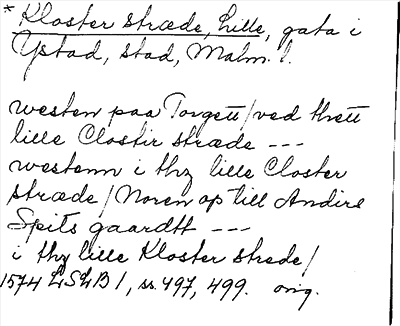 * Kloster stræde, Lille, gata i
Ystad, stad, Malm. l.
westen paa Torgett / ved thett
lille Clostir stræde ---
westenn i thy lille Closter
stræde / Noren op till Andirs
Spits gaardtt ---
i thy lille Kloster strede /
1574 LSLB 1, ss. 497, 499. orig.